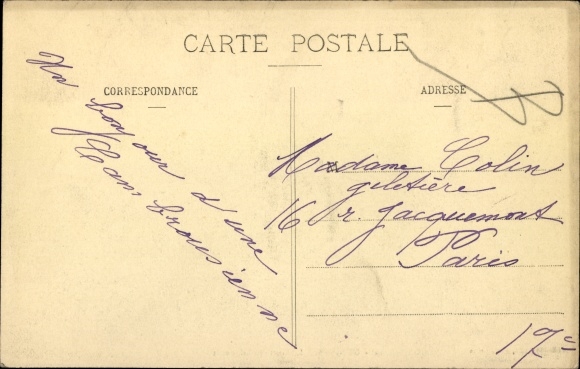 CARTE POSTALE
CORRESPONDANCE
ADRESSE
Un bonjour d'une
Cambrousienne
Madame Colin
giletière
16 r. Jacquemont
Paris
17e